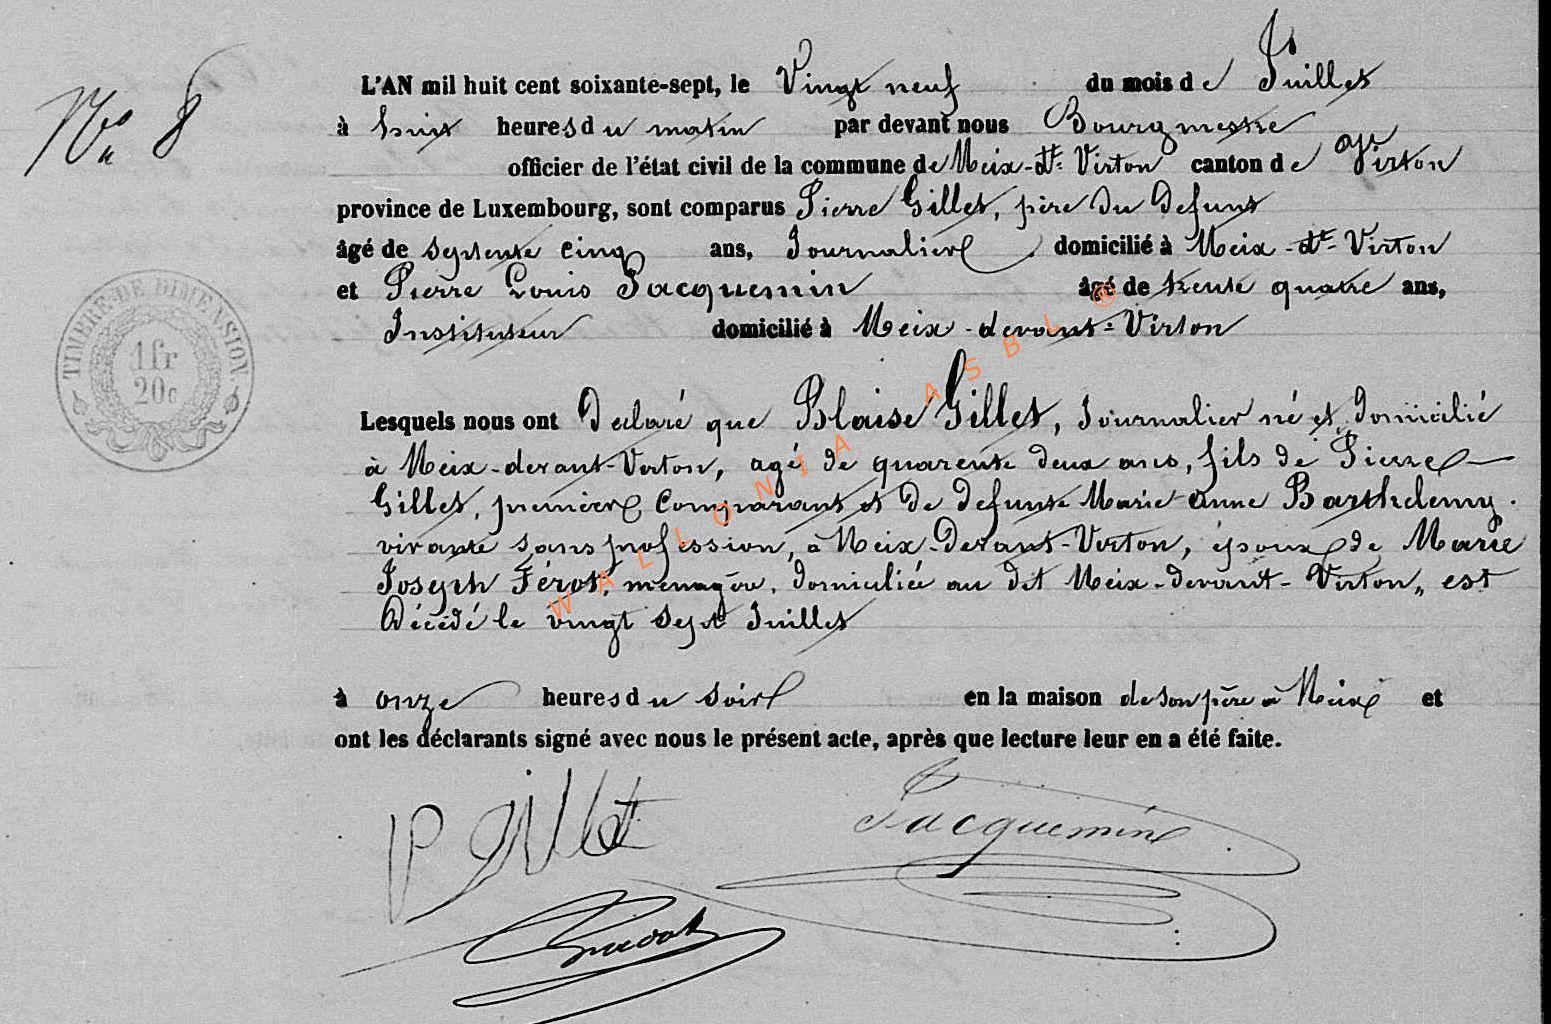 No 8
L'AN mil huit cent soixante-sept, le Vingt neuf du mois de Juillet
à huit heures du matin par devant nous Bourgmestre
officier de l'état civil de la commune de Meix-dt- Virton canton de Virton
province de Luxembourg, sont comparus Pierre Gillet, père du defunt
âgé de septente cinq ans, Journalier domicilié à Meix-dt-Virton
et Pierre Louis Jacquemin âgé de trente quatre ans,
Instituteur domicilié à Meix-devant-Virton
TIMBRE DE DIMENSION
1fr
20c
Lesquels nous ont declaré que Blaise Gillet, Journalier né et domicilié
à Meix-devant-Virton, agé de quarente deux ans, fils de Pierre
Gillet, premier comparant et de defunte Marie Anne Barthelemy.
vivante sans profession, à Meix-Devant-Virton, époux de Marie
Joseph Férot, menagère, domiciliée au dit Meix-devant-Virton,, est
Décédé le vingt sept Juillet
à onze heures du soir en la maison de son père à Meix et
ont les déclarants signé avec nous le présent acte, après que lecture leur en a été faite.
P Gillet Jacquemin
WALLONIA ASBL ®